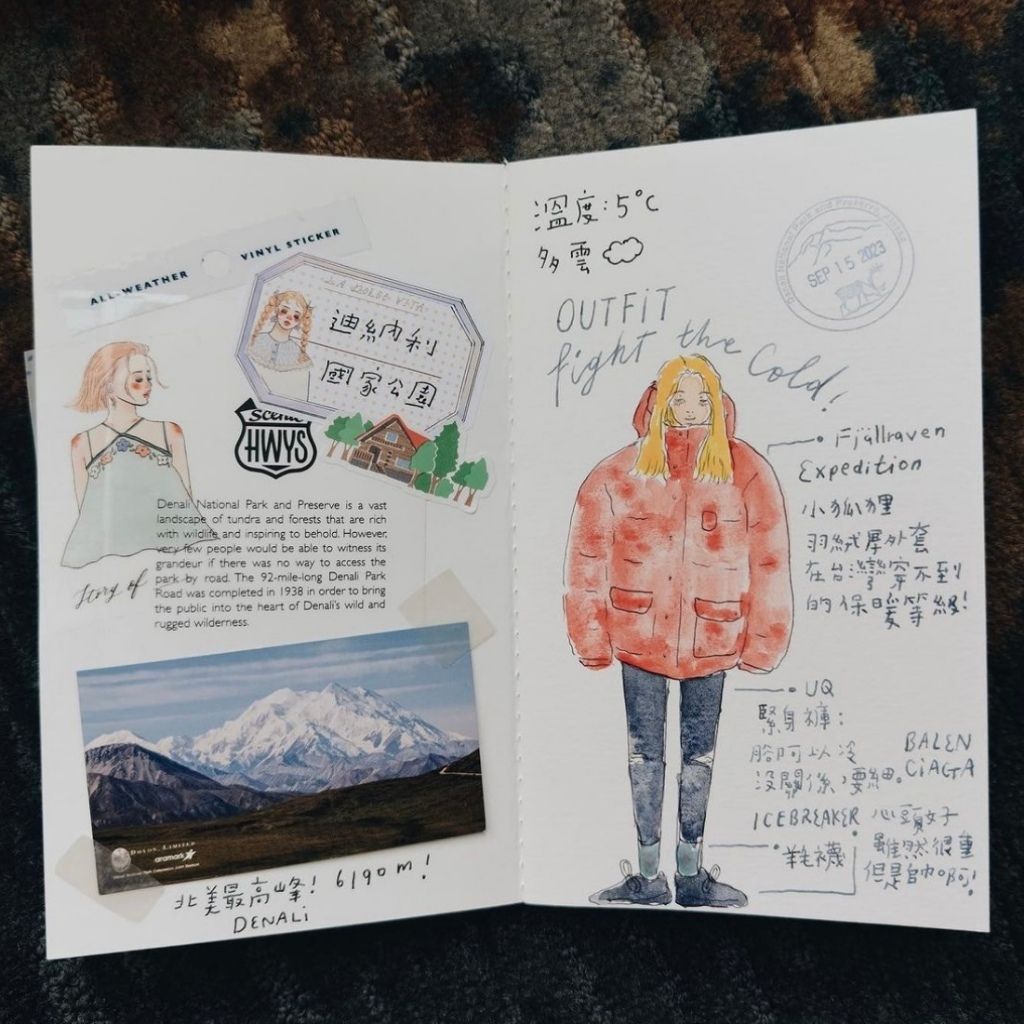 ALL-WEATHER VINYL STICKER
LA DOLCE VITA
迪納利
國家公園
Scenic
HWYS
Denali National Park and Preserve is a vast
landscape of tundra and forests that are rich
with wildlife and inspiring to behold. However,
very few people would be able to witness its
grandeur if there was no way to access the
park by road. The 92-mile-long Denali Park
Road was completed in 1938 in order to bring
the public into the heart of Denali's wild and
rugged wilderness.
Story of
DOYON, LIMITED
aramark
北美最高峰! 6190m!
DENALi
溫度:5°C
多雲
Denali National Park and Preserve, Alaska
SEP 15 2023
OUTFiT
fight the Cold!
Fjällraven
Expedition
小狐狸
羽絨厚外套
在台灣穿不到
的保暖等級!
UQ
緊身褲:
腿可以沒
沒關係,要細。
BALEN
CiAGA
ICEBREAKER
羊毛襪
心頭好
雖然很重
但是帥啊!